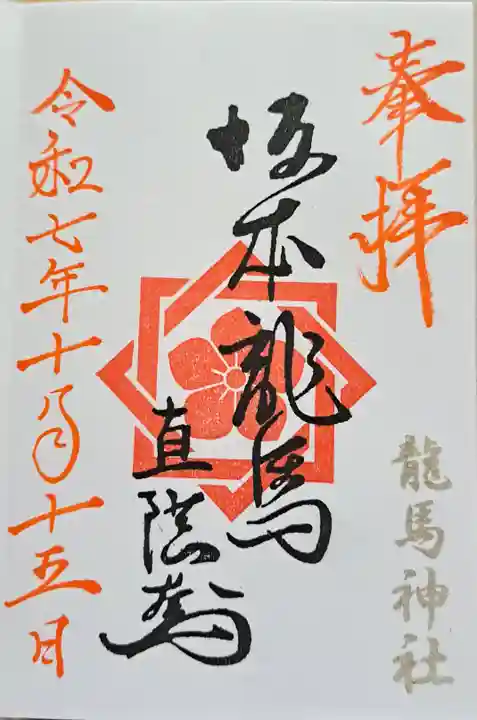 奉拝
龍馬神社
坂本龍馬
直陰
令和七年十月十五日